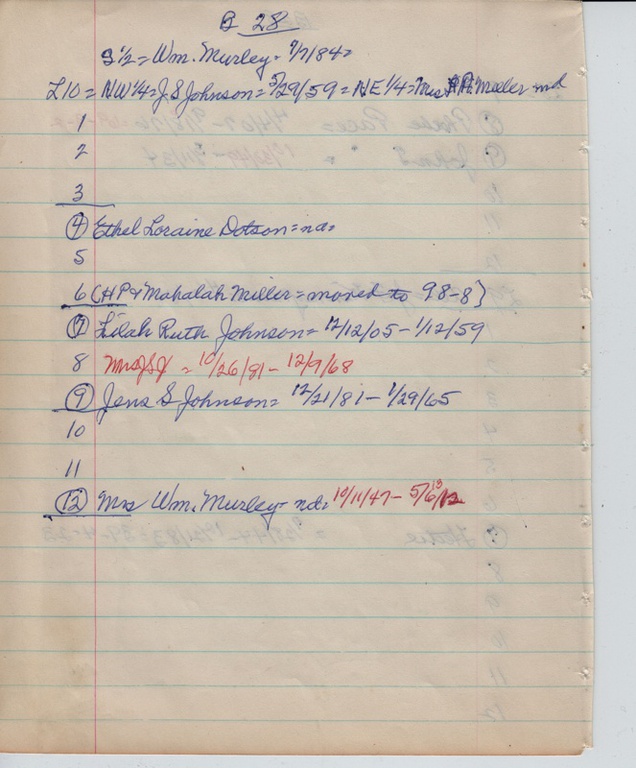 B 28
S 1/2 = Wm. Murley = 7/7/84 =
L10 = NW 1/4 = J S Johnson = 5/29/59 = NE 1/4 = Mrs Miller nd
1
2
3
4 Ethel Loraine Dotson = nd =
5
6 (HP & Mahalah Miller = moved to 98-8)
7 Lilah Ruth Johnson = 12/12/05 - 1/12/59
8 Mrs JSJ = 10/26/81 - 12/9/68
9 Jens S Johnson = 12/21/81 - 1/29/65
10
11
12 Mrs Wm. Murley = nd = 10/11/47 -